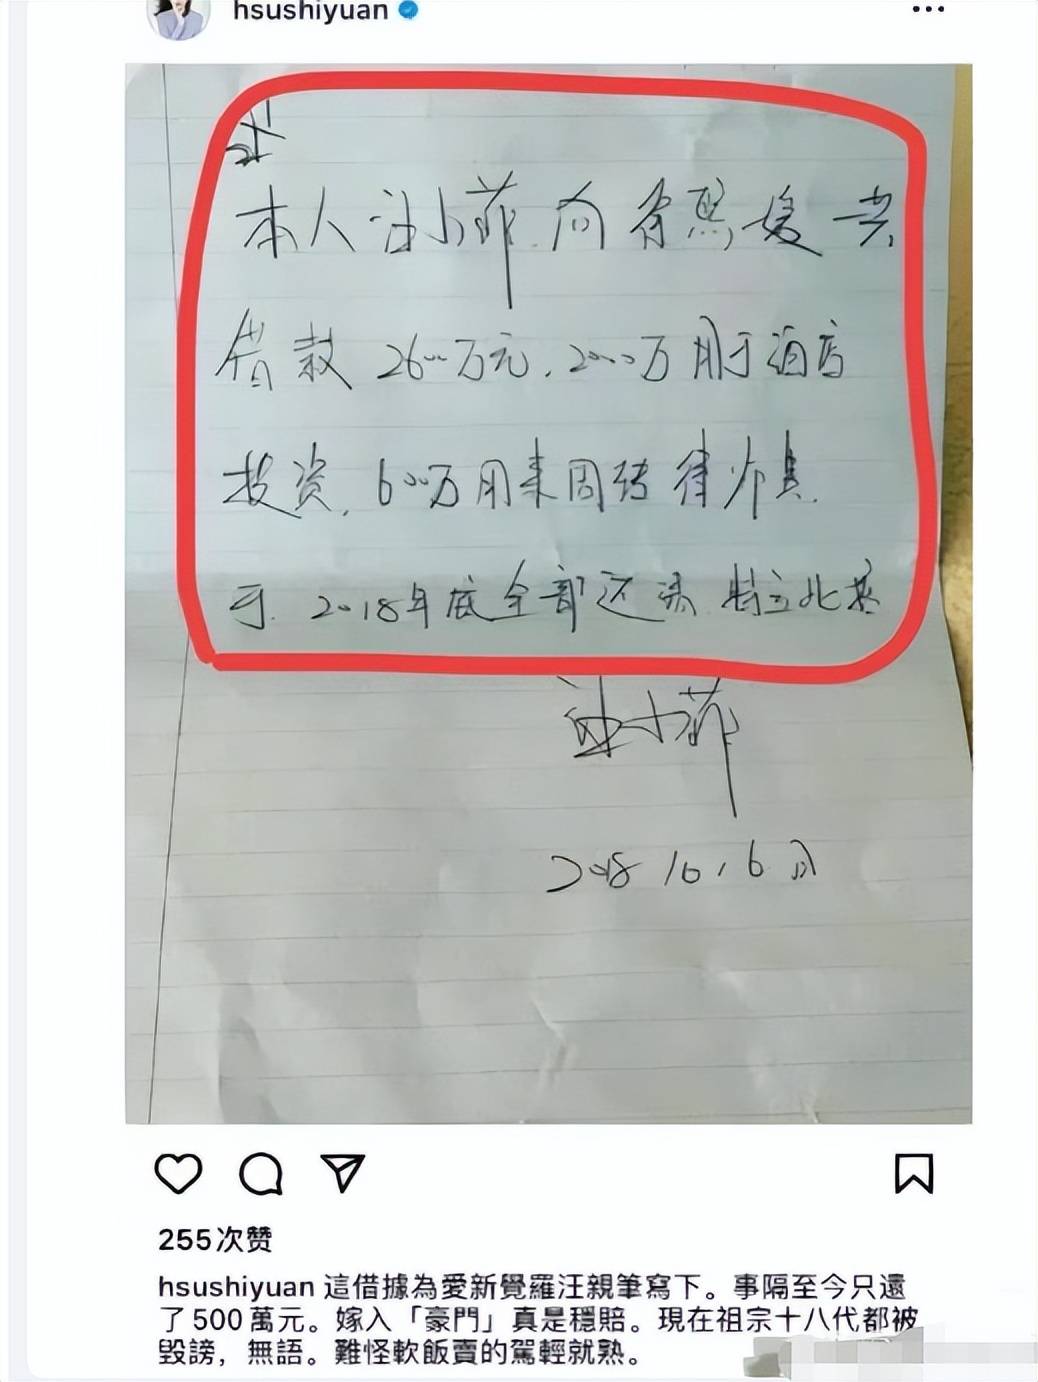 hsushiyuan
本人汪小菲向徐熙媛共
借款2600万元,2000万用于酒店
投资,600万用来周转律师费.
于2018年底全部还清 特立此据
汪小菲
2018 10,6日
255次赞
hsushiyuan 這借據為愛新覺羅汪親筆寫下。事隔至今只還
了500萬元。嫁入「豪門」真是穩賠。現在祖宗十八代都被
毀謗，無語。難怪軟飯賣的駕輕就熟。